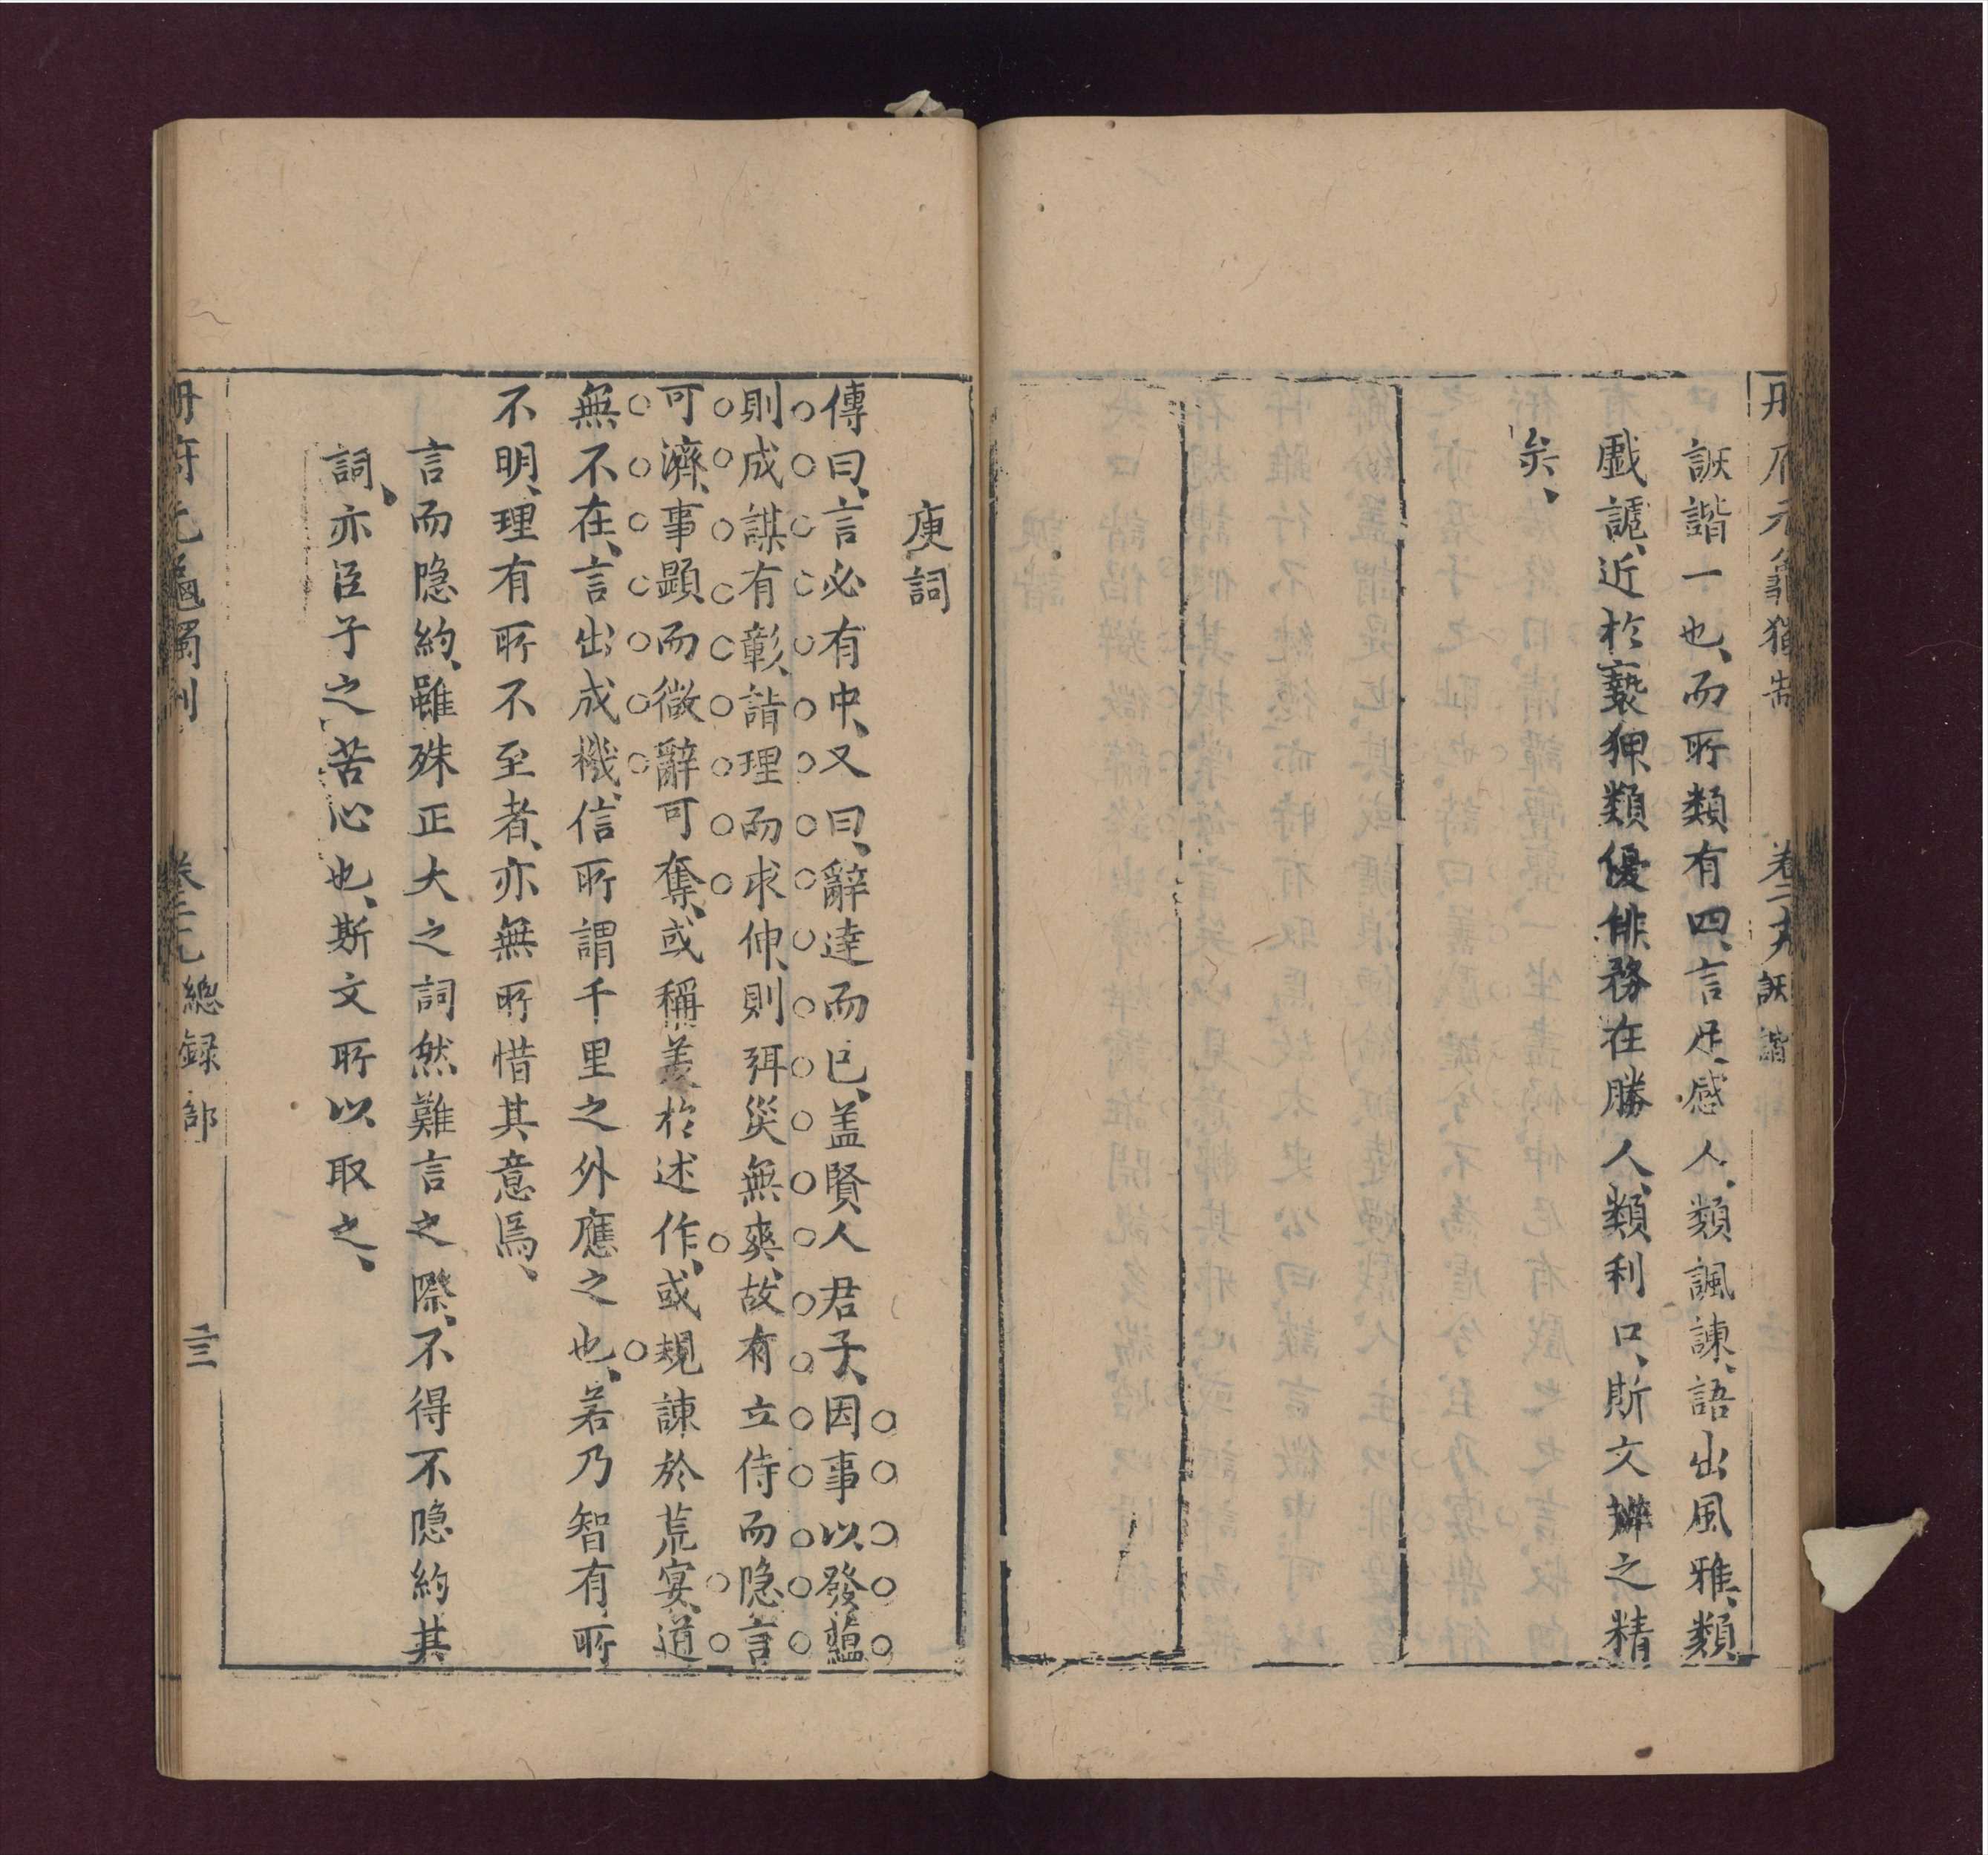 卷二十九 詼諧
詼諧一也、而所類有四、言足感人、類諷諫、語出風雅、類
戲謔、近於褻狎、類優俳、務在勝人、類利口、斯文辨之精
矣、
庾詞
傳曰、言必有中、又曰、辭達而已、盖賢人君子、因事以發蘊
則成謀有彰、詣理而求伸、則弭災無爽、故有立侍而隐言
可濟、事顕而微辭可奪、或稱羙於述作、或規諫於荒宴、道
無不在、言出成機、信所謂千里之外應之也、若乃智有所
不明、理有所不至者、亦無所惜其意焉、
言而隐約、雖殊正大之詞然難言之際、不得不隐約其
詞、亦臣子之苦心也、斯文所以取之、
冊府元龜獨制 卷二十九 總録部 三